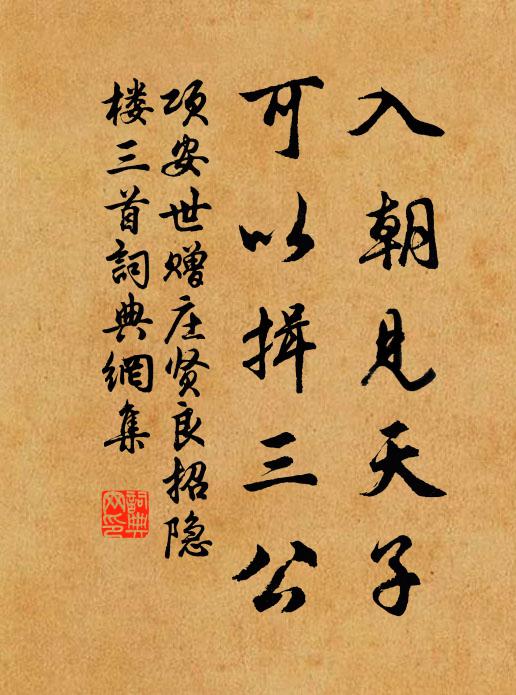 入朝見天子
可以揖三公
项安世赠庄贤良招隐
楼三首詞典網集
詞典网印